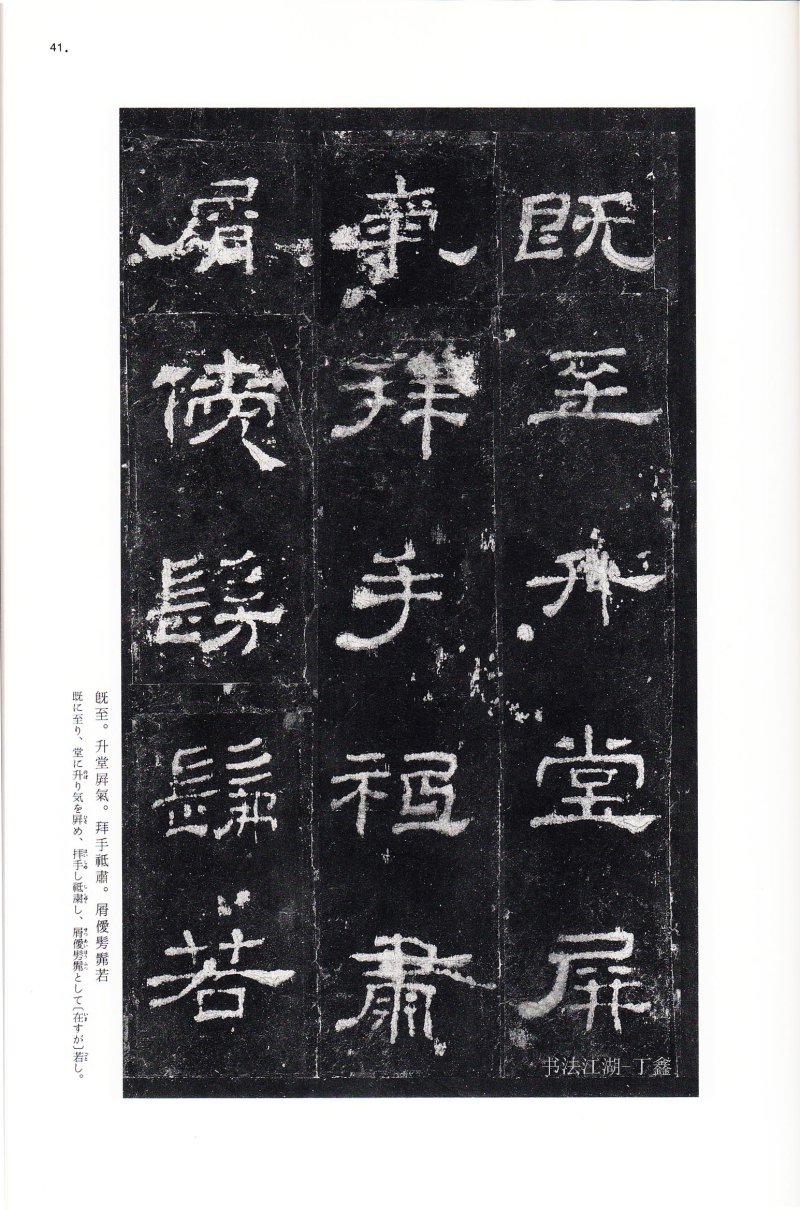 41.
既至升堂屏
氣拜手祗肅
屑僾髣髴若
书法江湖-丁鑫
既至。升堂屛氣。拜手祗肅。屑僾髣髴若
既に至り、堂に升り気を屛め、拝手し祗粛し、屑僾髣髴として〔在すが〕若し。